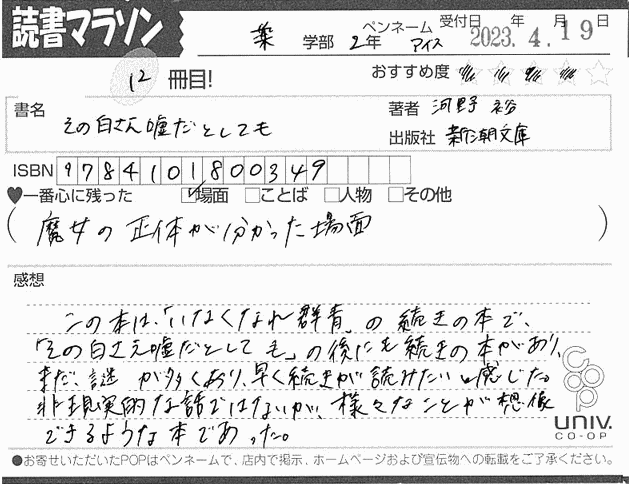 読書マラソン
薬 学部 2年 ペンネーム アイス 受付日 年 月 日 2023.4.19
12 冊目! おすすめ度
書名 その白さえ嘘だとしても 著者 河野 裕
出版社 新潮文庫
ISBN 9784101800349
♥一番心に残った ☑場面 □ことば □人物 □その他
(魔女の正体が分かった場面)
感想
この本は、「いなくなれ群青」の続きの本で、
「その白さえ嘘だとしても」の後にも続きの本があり、
まだ、謎が多くあり、早く続きが読みたいと感じた。
非現実的な話ではないが、様々なことが想像
できるような本であった。
coop
UNIV.
CO-OP
●お寄せいただいたPOPはペンネームで、店内で掲示、ホームページおよび宣伝物への転載をご了承ください。